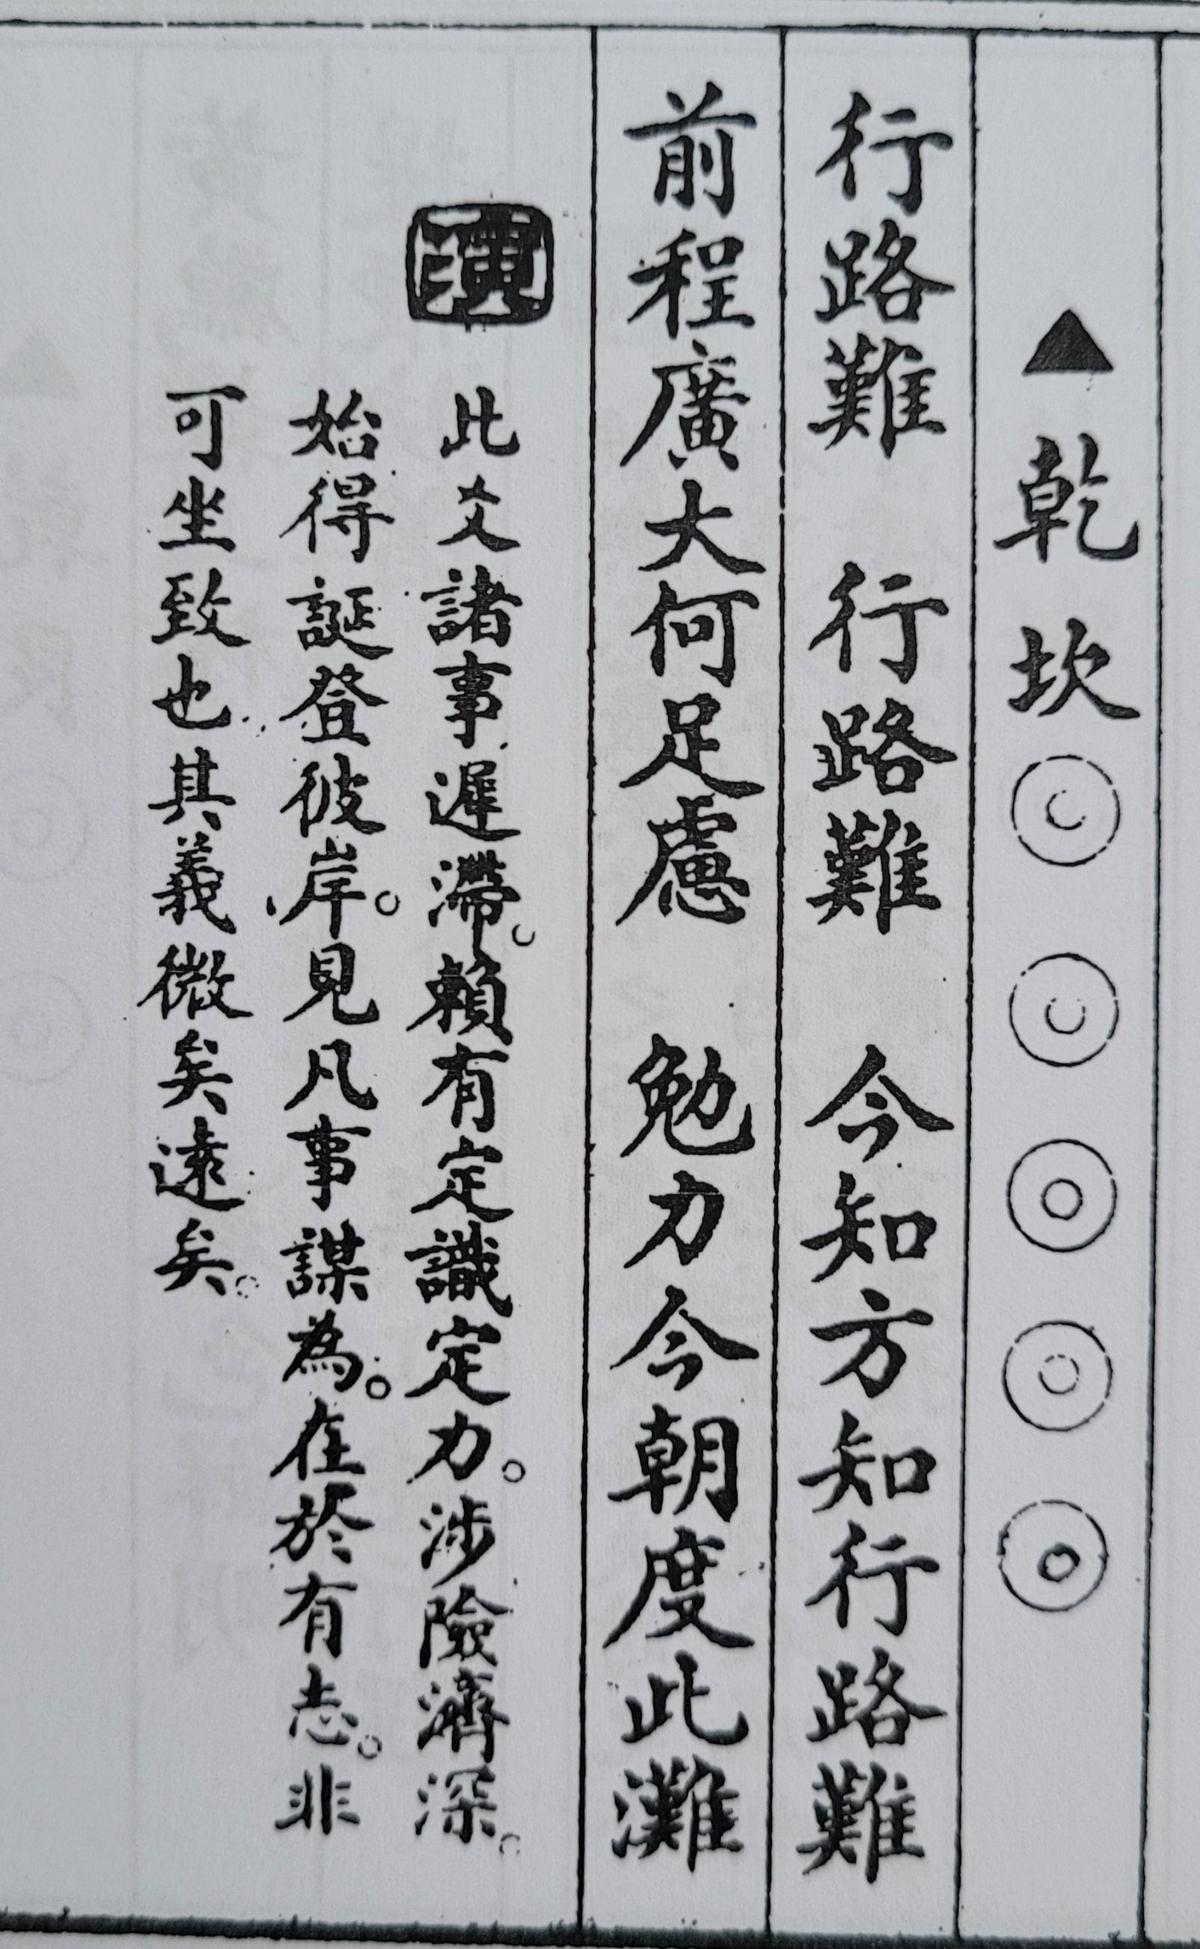 ▲乾坎◎◎◎◎◎
行路難 行路難 今知方知行路難
前程廣大何足慮 勉力今朝度此灘
演
此爻諸事遲滯。賴有定識定力。涉險濟深。
始得誕登彼岸。見凡事謀為。在於有志。非
可坐致也其義微矣遠矣。